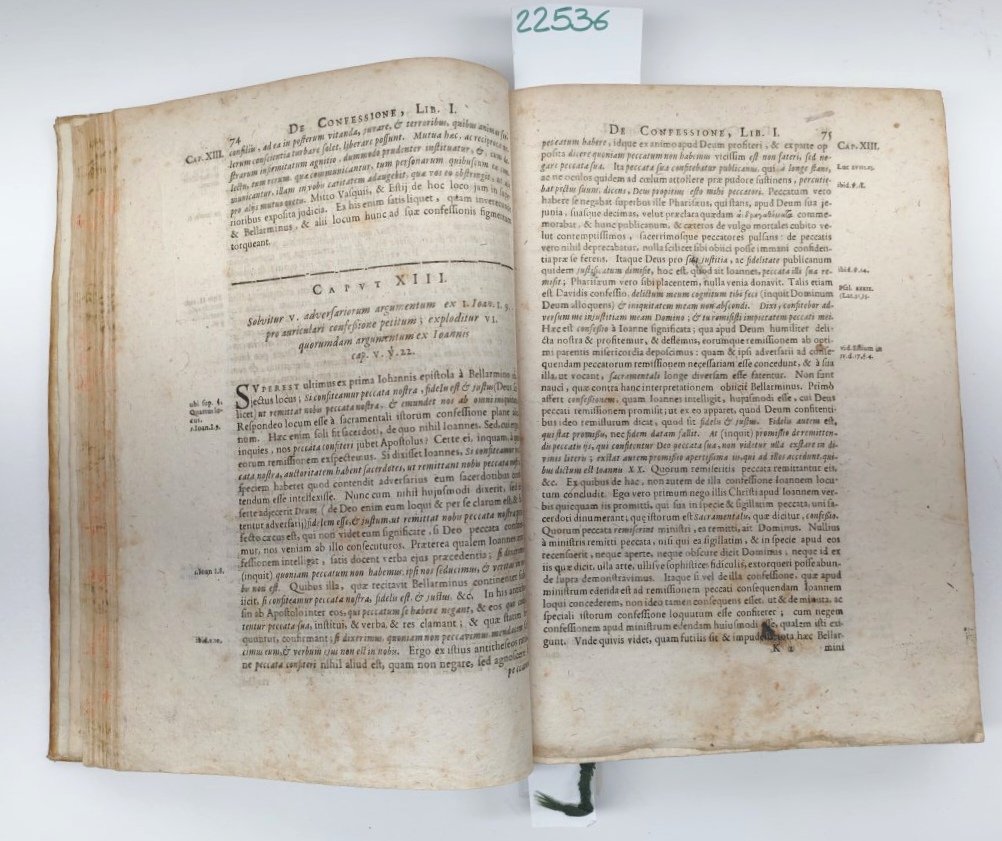 22536
74
DE CONFESSIONE, LIB. I.
CAP. XIII.
consiliu, ad ea in posterum vitanda, juvare, & terroribus, quibus animus
lorum conscientia turbare solet, liberare possunt. Mutua hæc, ac reciproca
strarum infirmitatum agnitio, dummodo prudenter instituatur, &, cum
lectu, tum rerum, quæ communicantur, tum personarum quibuscum ea
municantur, illam in vobis caritatem adaugebit, qua vos eo obstringit, ut alii
pro aliis mutuo oretis. Mitto Vasquis, & Estij de hoc loco jam in
rioribus exposita judicia. Ea his enim satis liquet, quam invereconde
& Bellarminus, & alii locum hunc ad suæ confessionis figmentum
torqueant.
CAPUT XIII.
Solvitur V. adversariorum argumentum ex I. Ioan. I. 9.
pro auriculari confessione petitum; exploditur VI.
quorumdam argumentum ex Ioannis
cap. V. ỳ. 22.
ubi sup. 4.
Quartus locus.
1. Ioan. 1. 9.
SUPEREST ultimus ex prima Iohannis epistola à Bellarmino
jectus locus; Si confiteamur peccata nostra, fidelis est & justus (Deus
licet) ut remittat nobis peccata nostra, & emundet nos ab omni iniquitate.
Respondeo locum esse à sacramentali istorum confessione plane
num. Hæc enim soli fit sacerdoti, de quo nihil Ioannes. Sed, cui
inquies, nos peccata confiteri jubet Apostolus? Certe ei, inquam, à quo
eorum remissionem exspectemus. Si dixisset Ioannes, Si confiteamur
cata nostra, auctoritatem habent sacerdotes, ut remittant nobis peccata nostra,
speciem haberet quod contendit adversarius eum sacerdotibus
tendum esse intellexisse. Nunc cum nihil hujusmodi dixerit, sed
serte adjecerit Deum (de Deo enim eum loqui & per se clarum est, &
tentur adversarij) fidelem esse, & justum, ut remittat nobis peccata nostra,
festo cæcus est, qui non videt eum significare, si Deo peccata
mur, nos veniam ab illo consecuturos. Præterea qualem Ioannes
fessionem intelligat, satis docent verba ejus præcedentia; si dixerimus
1. Ioan 1. 8.
(inquit) quoniam peccatum non habemus, ipsi nos seducimus, & veritas in
bis non est. Quibus illa, quæ recitavit Bellarminus continenter
jicit, si confiteamur peccata nostra, fidelis est, & justus, &c. In his
sin ab Apostolo inter eos, qui peccatum se habere negant, & eos qui
tentur peccata sua, institui, & verba, & res clamant; & quæ statim
ibid. 1. 10.
quuntur, confirmant; si dixerimus, quoniam non peccavimus, mendacem
cimus eum, & verbum ejus non est in nobis. Ergo ex istius antitheseos
ne peccata confiteri nihil aliud est, quam non negare, sed agnoscere
peccatum
DE CONFESSIONE, LIB. I.
75
CAP. XIII.
peccatum habere, idque ex animo apud Deum profiteri, & ex parte op
posita dicere quoniam peccatum non habemus vicissim est non fateri, sed ne-
gare peccata sua. Ita peccata sua confitebatur publicanus, qui à longe stans,
Luc XVIII. 13.
ac ne oculos quidem ad cœlum attollere præ pudore sustinens, percutie-
bat pectus suum, dicens, Deus propitius esto mihi peccatori. Peccatum vero
ibid. ỳ. 11.
habere se negabat superbus ille Pharisæus, qui stans, apud Deum sua je-
junia, suasque decimas, velut præclara quædam commemo-
morabat, & hunc publicanum, & cæteros de vulgo mortales cubito ve-
lut contemptissimos, sacerrimosque peccatores pulsans: de peccatis
vero nihil deprecabatur, nulla scilicet sibi obici posse immani confiden-
tia præ se ferens. Itaque Deus pro sua justitia, ac fidelitate publicanum
quidem justificatum dimisit, hoc est, quod ait Ioannes, peccata illi sua re-
ibid. ỳ. 14.
misit; Pharisæum vero sibi placentem, nulla venia donavit. Talis etiam
est Davidis confessio, delictum meum cognitum tibi feci (inquit Dominum
Psal. XXXII.
(Lat. 31) 5.
Deum alloquens) & iniquitatem meam non abscondi. Dixi, confitebor ad-
versum me injustitiam meam Domino; & tu remisisti impietatem peccati mei.
Hæc est confessio à Ioanne significata; qua apud Deum humiliter deli-
cta nostra & profitemur, & deflemus, eorumque remissionem ab opti-
mi parentis misericordia deposcimus: quam & ipsi adversarii ad conse-
vid. Estium in
IV. d. 17. §. 4.
quendam peccatorum remissionem necessariam esse concedunt, & à sua
illa, ut vocant, sacramentali longe diversam esse fatentur. Non sunt
nauci, quæ contra hanc interpretationem obiicit Bellarminus. Primò
asserit confessionem, quam Ioannes intelligit, hujusmodi esse, cui Deus
peccati remissionem promisit; ut ex eo apparet, quod Deum confitenti-
bus ideo remissurum dicat, quod sit fidelis & justus. Fidelis autem est,
qui stat promissis, nec fidem datam fallit. At (inquit) promissio de remitten-
dis peccatis iis, qui confitentur Deo peccata sua, non videtur ulla exstare in di-
vinis literis; exstat autem promissio apertissima iis, qui ad illos accedunt, qui-
bus dictum est Ioannis XX. Quorum remiseritis peccata remittantur eis,
&c. Ex quibus de hac, non autem de illa confessione Ioannem locu-
tum concludit. Ego vero primum nego illis Christi apud Ioannem ver-
bis quicquam iis promitti, qui sua in specie & sigillatim peccata, uni sa-
cerdoti dinumerant; quæ istorum est Sacramentalis, quæ dicitur, confessio.
Quorum peccata remiserint ministri, ea remitti, ait Dominus. Nullius
à ministris remitti peccata, nisi qui ea sigillatim, & in specie apud eos
recensuerit, neque aperte, neque obscure dicit Dominus, neque id ex
iis quæ dicit, ulla arte, ullisve sophistices fidiculis, extorqueri posse abun-
de supra demonstravimus. Itaque si vel de illa confessione, quæ apud
ministrum edenda est ad remissionem peccati consequendam Ioannem
loqui concederem, non ideo tamen consequens esset, ut & de minuta, ac
speciali istorum confessione loquutum esse confiterer; cum negem
confessionem apud ministrum edendam huiusmodi esse, qualem isti exi-
gunt. Unde quivis videt, quam futilis sit & impudens tota hæc Bellar-
K 2
mini